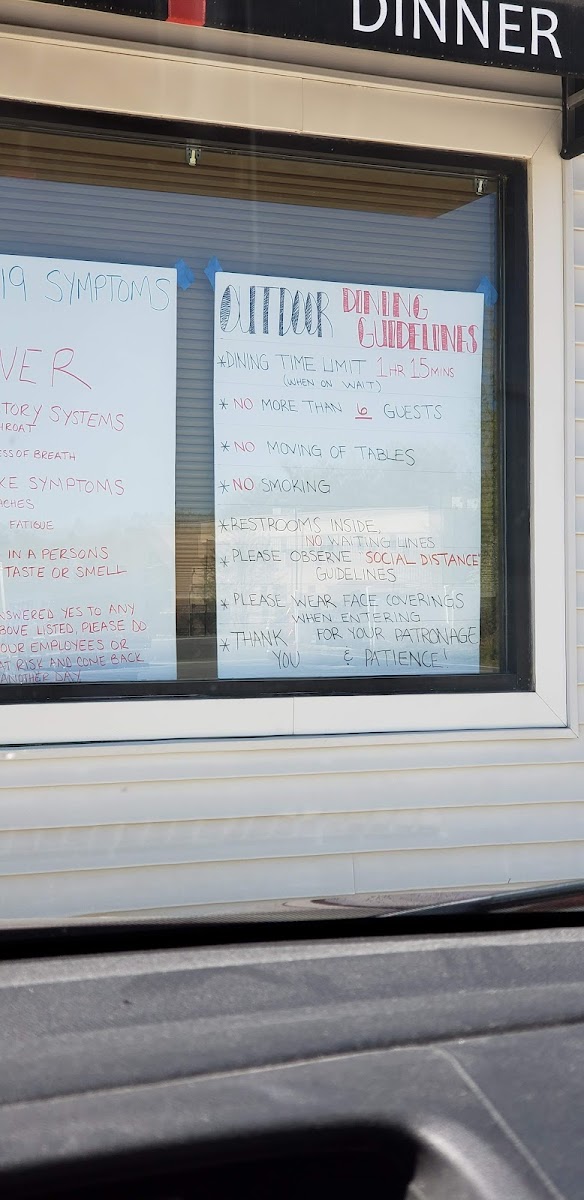 DINNER
19 SYMPTOMS
VER
TORY SYSTEMS
HROAT
ESS OF BREATH
KE SYMPTOMS
ACHES
FATIGUE
IN A PERSONS
TASTE OR SMELL
NSWERED YES TO ANY
BOVE LISTED, PLEASE DO
OUR EMPLOYEES OR
AT RISK AND COME BACK
ANOTHER DAY
OUTDOOR DINING
GUIDELINES
*DINING TIME LIMIT 1 HR 15 MINS
(WHEN ON WAIT)
* NO MORE THAN 6 GUESTS
* NO MOVING OF TABLES
* NO SMOKING
*RESTROOMS INSIDE,
NO WAITING LINES
* PLEASE OBSERVE "SOCIAL DISTANCE"
GUIDELINES
* PLEASE WEAR FACE COVERINGS
WHEN ENTERING
* THANK FOR YOUR PATRONAGE
YOU & PATIENCE!